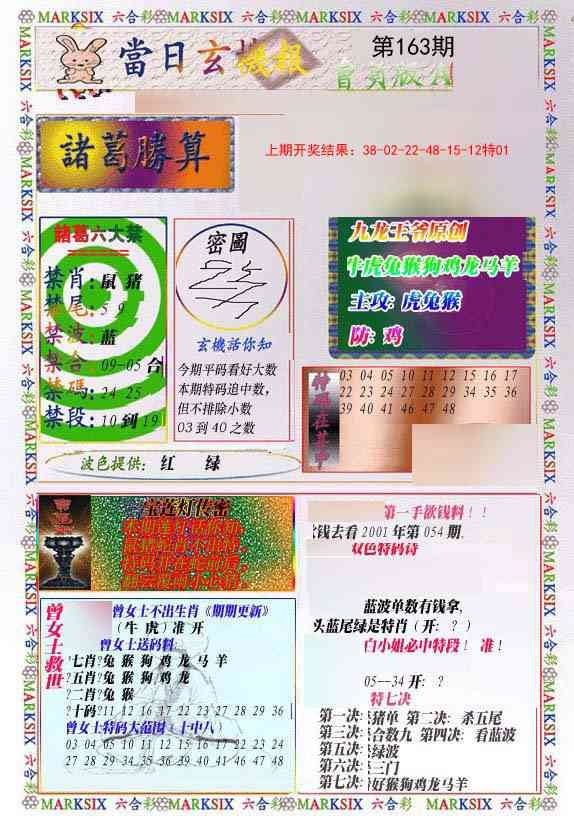 MARKSIX 六合彩 MARKSIX 六合彩 MARKSIX 六合彩 MARKSIX 六合彩 MARKSIX 六合彩
當日玄機報
第163期
諸葛勝算
上期开奖结果: 38-02-22-48-15-12特01
諸葛六大禁
禁肖: 鼠 猪
禁尾: 5 9
禁波: 蓝
禁合: 09-05 合
禁碼: 24 25
禁段: 10 到 19
密圖
玄機話你知
今期平码看好大数
本期特码追中数,
但不排除小数
03 到 40 之数
九龙王爷原创
牛虎兔猴狗鸡龙马羊
主攻: 虎兔猴
防: 鸡
03 04 05 10 11 12 15 16 17
22 23 24 27 28 29 34 35 36
39 40 41 46 47 48
波色提供: 红 绿
宝莲灯传密
第一手欲钱料!!
欲钱去看 2001 年第 054 期,
双色特码诗
蓝波单数有钱拿,
头蓝尾绿是特肖 (开: ?)
白小姐必中特段! 准!
05--34 开: ?
特七决
第一决: 猪单 第二决: 杀五尾
第三决: 合数九 第四决: 看蓝波
第五决: 绿波
第六决: 三门
第七决: 好猴狗鸡龙马羊
曾女士救世
曾女士不出生肖《期期更新》
(牛 虎) 准 开
曾女士送码料:
?七肖?兔 猴 狗 鸡 龙 马 羊
?五肖?兔 猴 狗 鸡 龙
?二肖?兔 猴
?十码?11 12 16 17 22 23 27 28 29 36
曾女士特码大范围 (十中八)
03 04 05 10 11 12 15 16 17 22 23 24
27 28 29 34 35 36 39 40 41 46 47 48
MARKSIX 六合彩 MARKSIX 六合彩 MARKSIX 六合彩 MARKSIX 六合彩 MARKSIX 六合彩